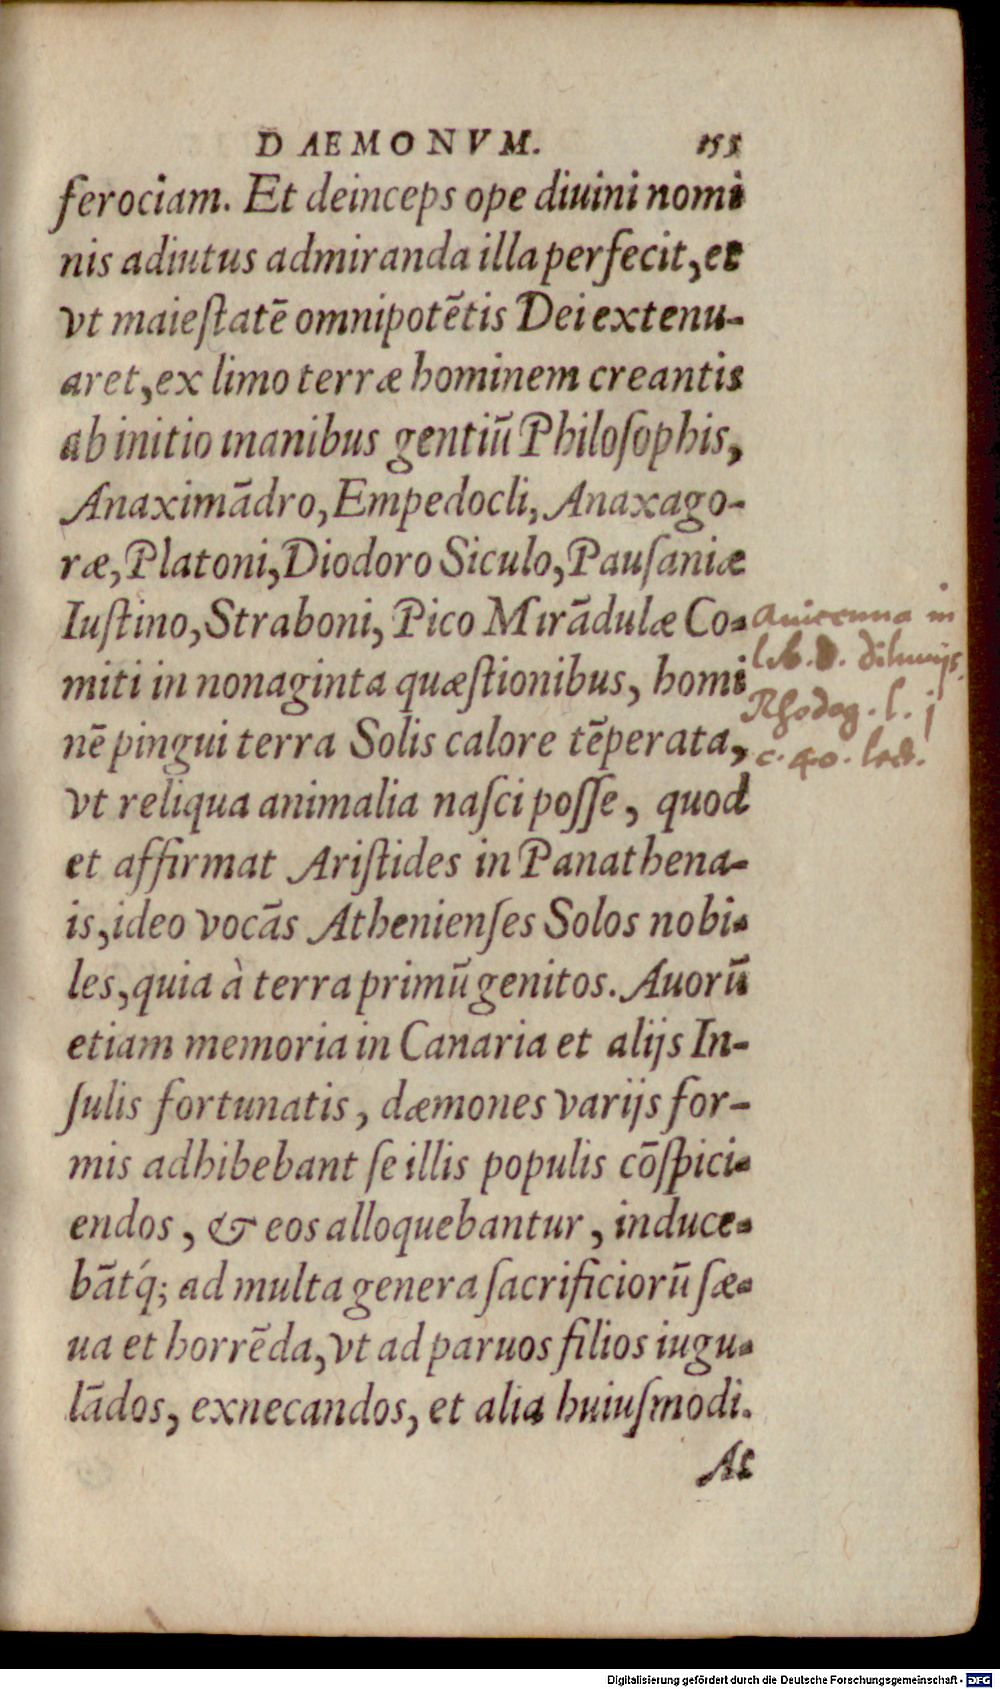 DAEMONVM. 155
ferociam. Et deinceps ope diuini nomi
nis adiutus admiranda illa perfecit, et
vt maiestatē omnipotētis Dei extenu-
aret, ex limo terræ hominem creantis
ab initio manibus gentiū Philosophis,
Anaximādro, Empedocli, Anaxago-
ræ, Platoni, Diodoro Siculo, Pausaniæ
Iustino, Straboni, Pico Mirādulæ Co-
miti in nonaginta quæstionibus, homi
nē pingui terra Solis calore tēperata,
vt reliqua animalia nasci posse, quod
et affirmat Aristides in Panathena-
is, ideo vocās Athenienses Solos nobi-
les, quia à terra primū genitos. Auorū
etiam memoria in Canaria et alijs In-
sulis fortunatis, dæmones varijs for-
mis adhibebant se illis populis cōspici-
endos, & eos alloquebantur, induce-
bātq́; ad multa genera sacrificiorū sæ-
ua et horrēda, vt ad paruos filios iugu-
lādos, exnecandos, et alia huiusmodi.
At
Auicenna in
lib. d. diluuijs.
Rhodog. l. j
c. 40. lect.
Digitalisierung gefördert durch die Deutsche Forschungsgemeinschaft - DFG